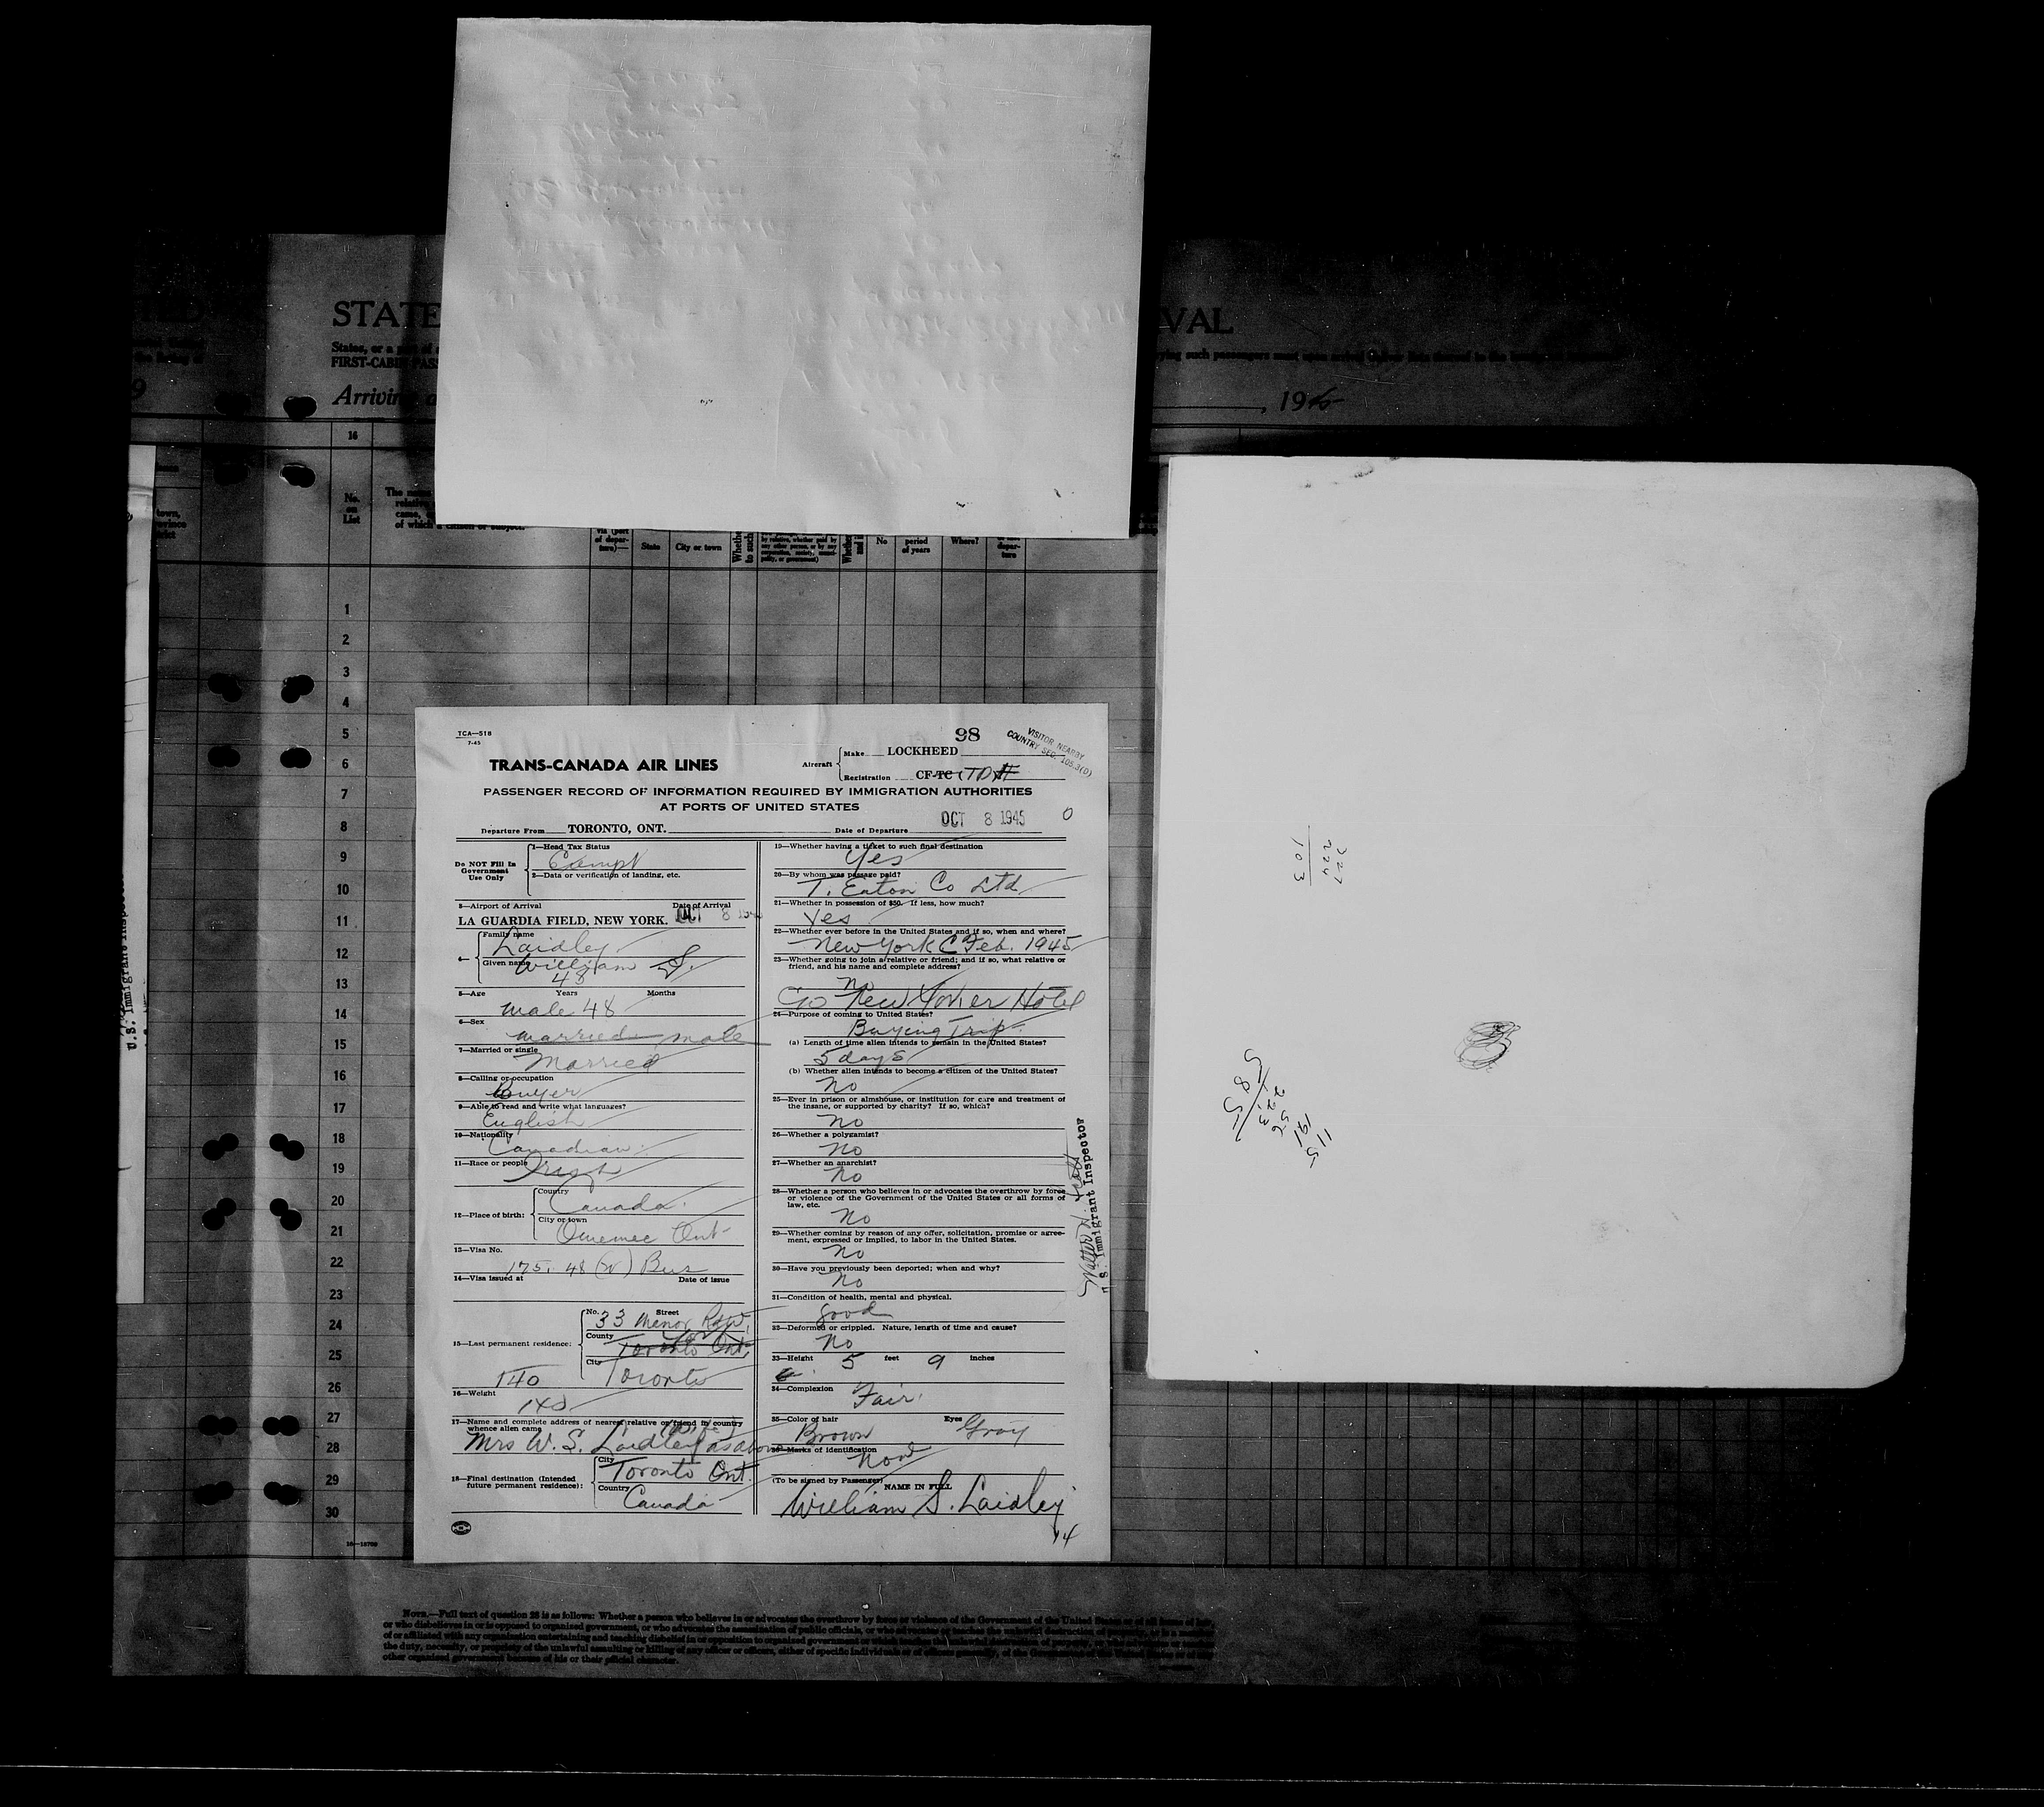 STATE
VAL
FIRST-CABIN PASS
Arriving
, 19
16
No. on List
State
City or town
No
period of years
Where?
1
2
3
4
5
6
7
8
9
10
11
12
13
14
15
16
17
18
19
20
21
22
23
24
25
26
27
28
29
30
TCA—518
7-45
98
VISITOR NEARBY
COUNTRY SEC. 105.3(D)
TRANS-CANADA AIR LINES
Aircraft
Make LOCKHEED
Registration CF-TC
PASSENGER RECORD OF INFORMATION REQUIRED BY IMMIGRATION AUTHORITIES
AT PORTS OF UNITED STATES
Departure From TORONTO, ONT. Date of Departure OCT 8 1945
Do NOT Fill In Government Use Only
1—Head Tax Status
Exempt
2—Data or verification of landing, etc.
3—Airport of Arrival Date of Arrival
LA GUARDIA FIELD, NEW YORK. OCT 8
4—
Family name
Laidley
Given name
William S.
48
5—Age Years Months
male 48
6—Sex
married male
7—Married or single
Married
8—Calling or occupation
Buyer
9—Able to read and write what languages?
English
10—Nationality
Canadian
11—Race or people
Irish
12—Place of birth:
Country
Canada
City or town
Omemee Ont
13—Visa No.
175. 48 (W) Bus
14—Visa issued at Date of issue
15—Last permanent residence:
No. Street
33 Menor
County
Toronto Ont.
City
Toronto
140
16—Weight
140
17—Name and complete address of nearest relative or friend in country
whence alien came (Wife)
Mrs W. S. Laidley as above
18—Final destination (Intended
future permanent residence):
City
Toronto Ont.
Country
Canada
19—Whether having a ticket to such final destination
Yes
20—By whom was passage paid?
T. Eaton Co Ltd
21—Whether in possession of $50. If less, how much?
Yes
22—Whether ever before in the United States and if so, when and where?
New York C Feb. 1945
23—Whether going to join a relative or friend; and if so, what relative or
friend, and his name and complete address?
no
C/o New Yorker Hotel
24—Purpose of coming to United States?
Buying Trip
(a) Length of time alien intends to remain in the United States?
5 days
(b) Whether alien intends to become a citizen of the United States?
No
25—Ever in prison or almshouse, or institution for care and treatment of
the insane, or supported by charity? If so, which?
No
26—Whether a polygamist?
No
27—Whether an anarchist?
No
28—Whether a person who believes in or advocates the overthrow by force
or violence of the Government of the United States or all forms of
law, etc.
No
29—Whether coming by reason of any offer, solicitation, promise or agree-
ment, expressed or implied, to labor in the United States.
No
30—Have you previously been deported; when and why?
No
31—Condition of health, mental and physical.
Good
32—Deformed or crippled. Nature, length of time and cause?
No
33—Height 5 feet 9 inches
34—Complexion
Fair
35—Color of hair Eyes
Brown Gray
36—Marks of identification
None
(To be signed by Passenger) NAME IN FULL
William S. Laidley
14
U.S. Immigrant Inspector
U.S. Immigrant Inspector
227
224
103
115
191
56
223
585
16—18700
NOTE.—Full text of question 28 is as follows: Whether a person who believes in or advocates the overthrow by force or violence of the Government of the United States or of all forms of law,
or who disbelieves in or is opposed to organized government, or who advocates the assassination of public officials, or who advocates or teaches the unlawful destruction of property, or is a member
of or affiliated with any organization entertaining and teaching disbelief in or opposition to organized government
the duty, necessity, or propriety of the unlawful assaulting or killing of any officer or officers, either of specific individuals or of officers generally, of the Government of the United States or of any
other organized government because of his or their official character.